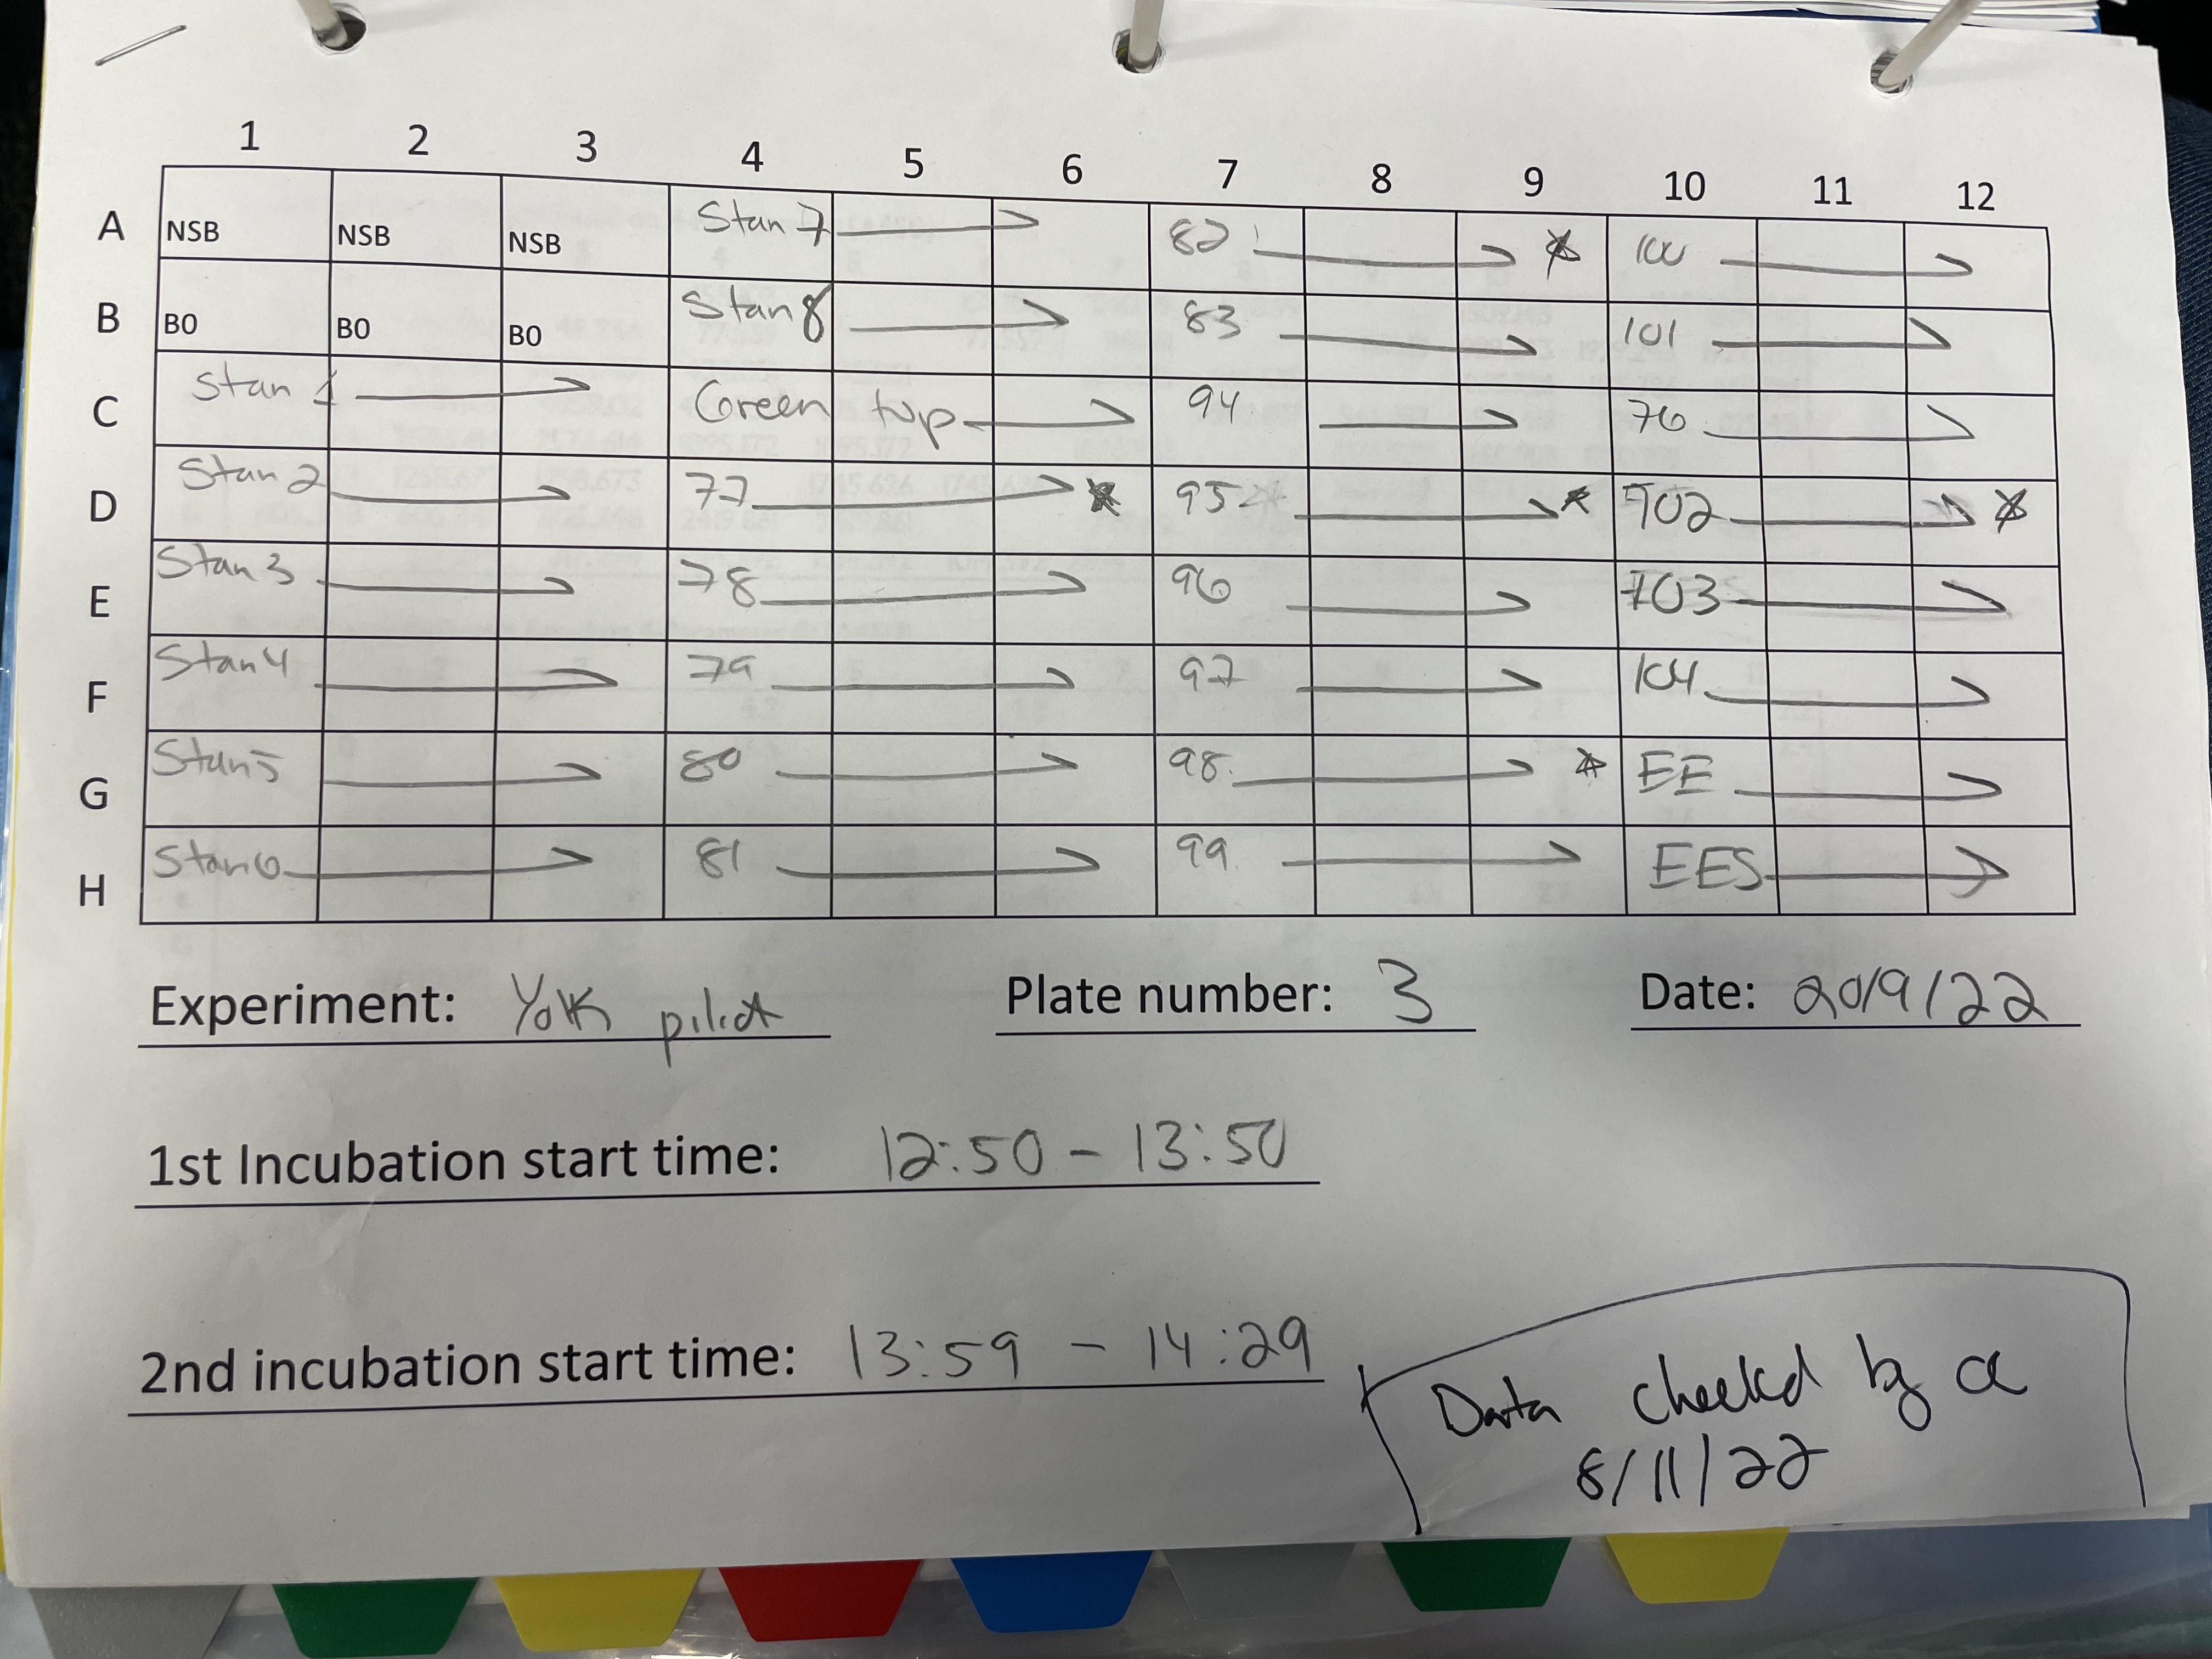 1 2 3 4 5 6 7 8 9 10 11 12
A NSB NSB NSB Stan 7 82 100
B B0 B0 B0 Stan 8 83 101
C Stan 1 Green top 94 76
D Stan 2 77 95 102
E Stan 3 78 96 103
F Stan 4 79 97 104
G Stan 5 80 98 EE
H Stan 6 81 99 EES
Experiment: Yolk pilot Plate number: 3 Date: 20/9/22
1st Incubation start time: 12:50 - 13:50
2nd incubation start time: 13:59 - 14:29
Data checked by
8/11/22